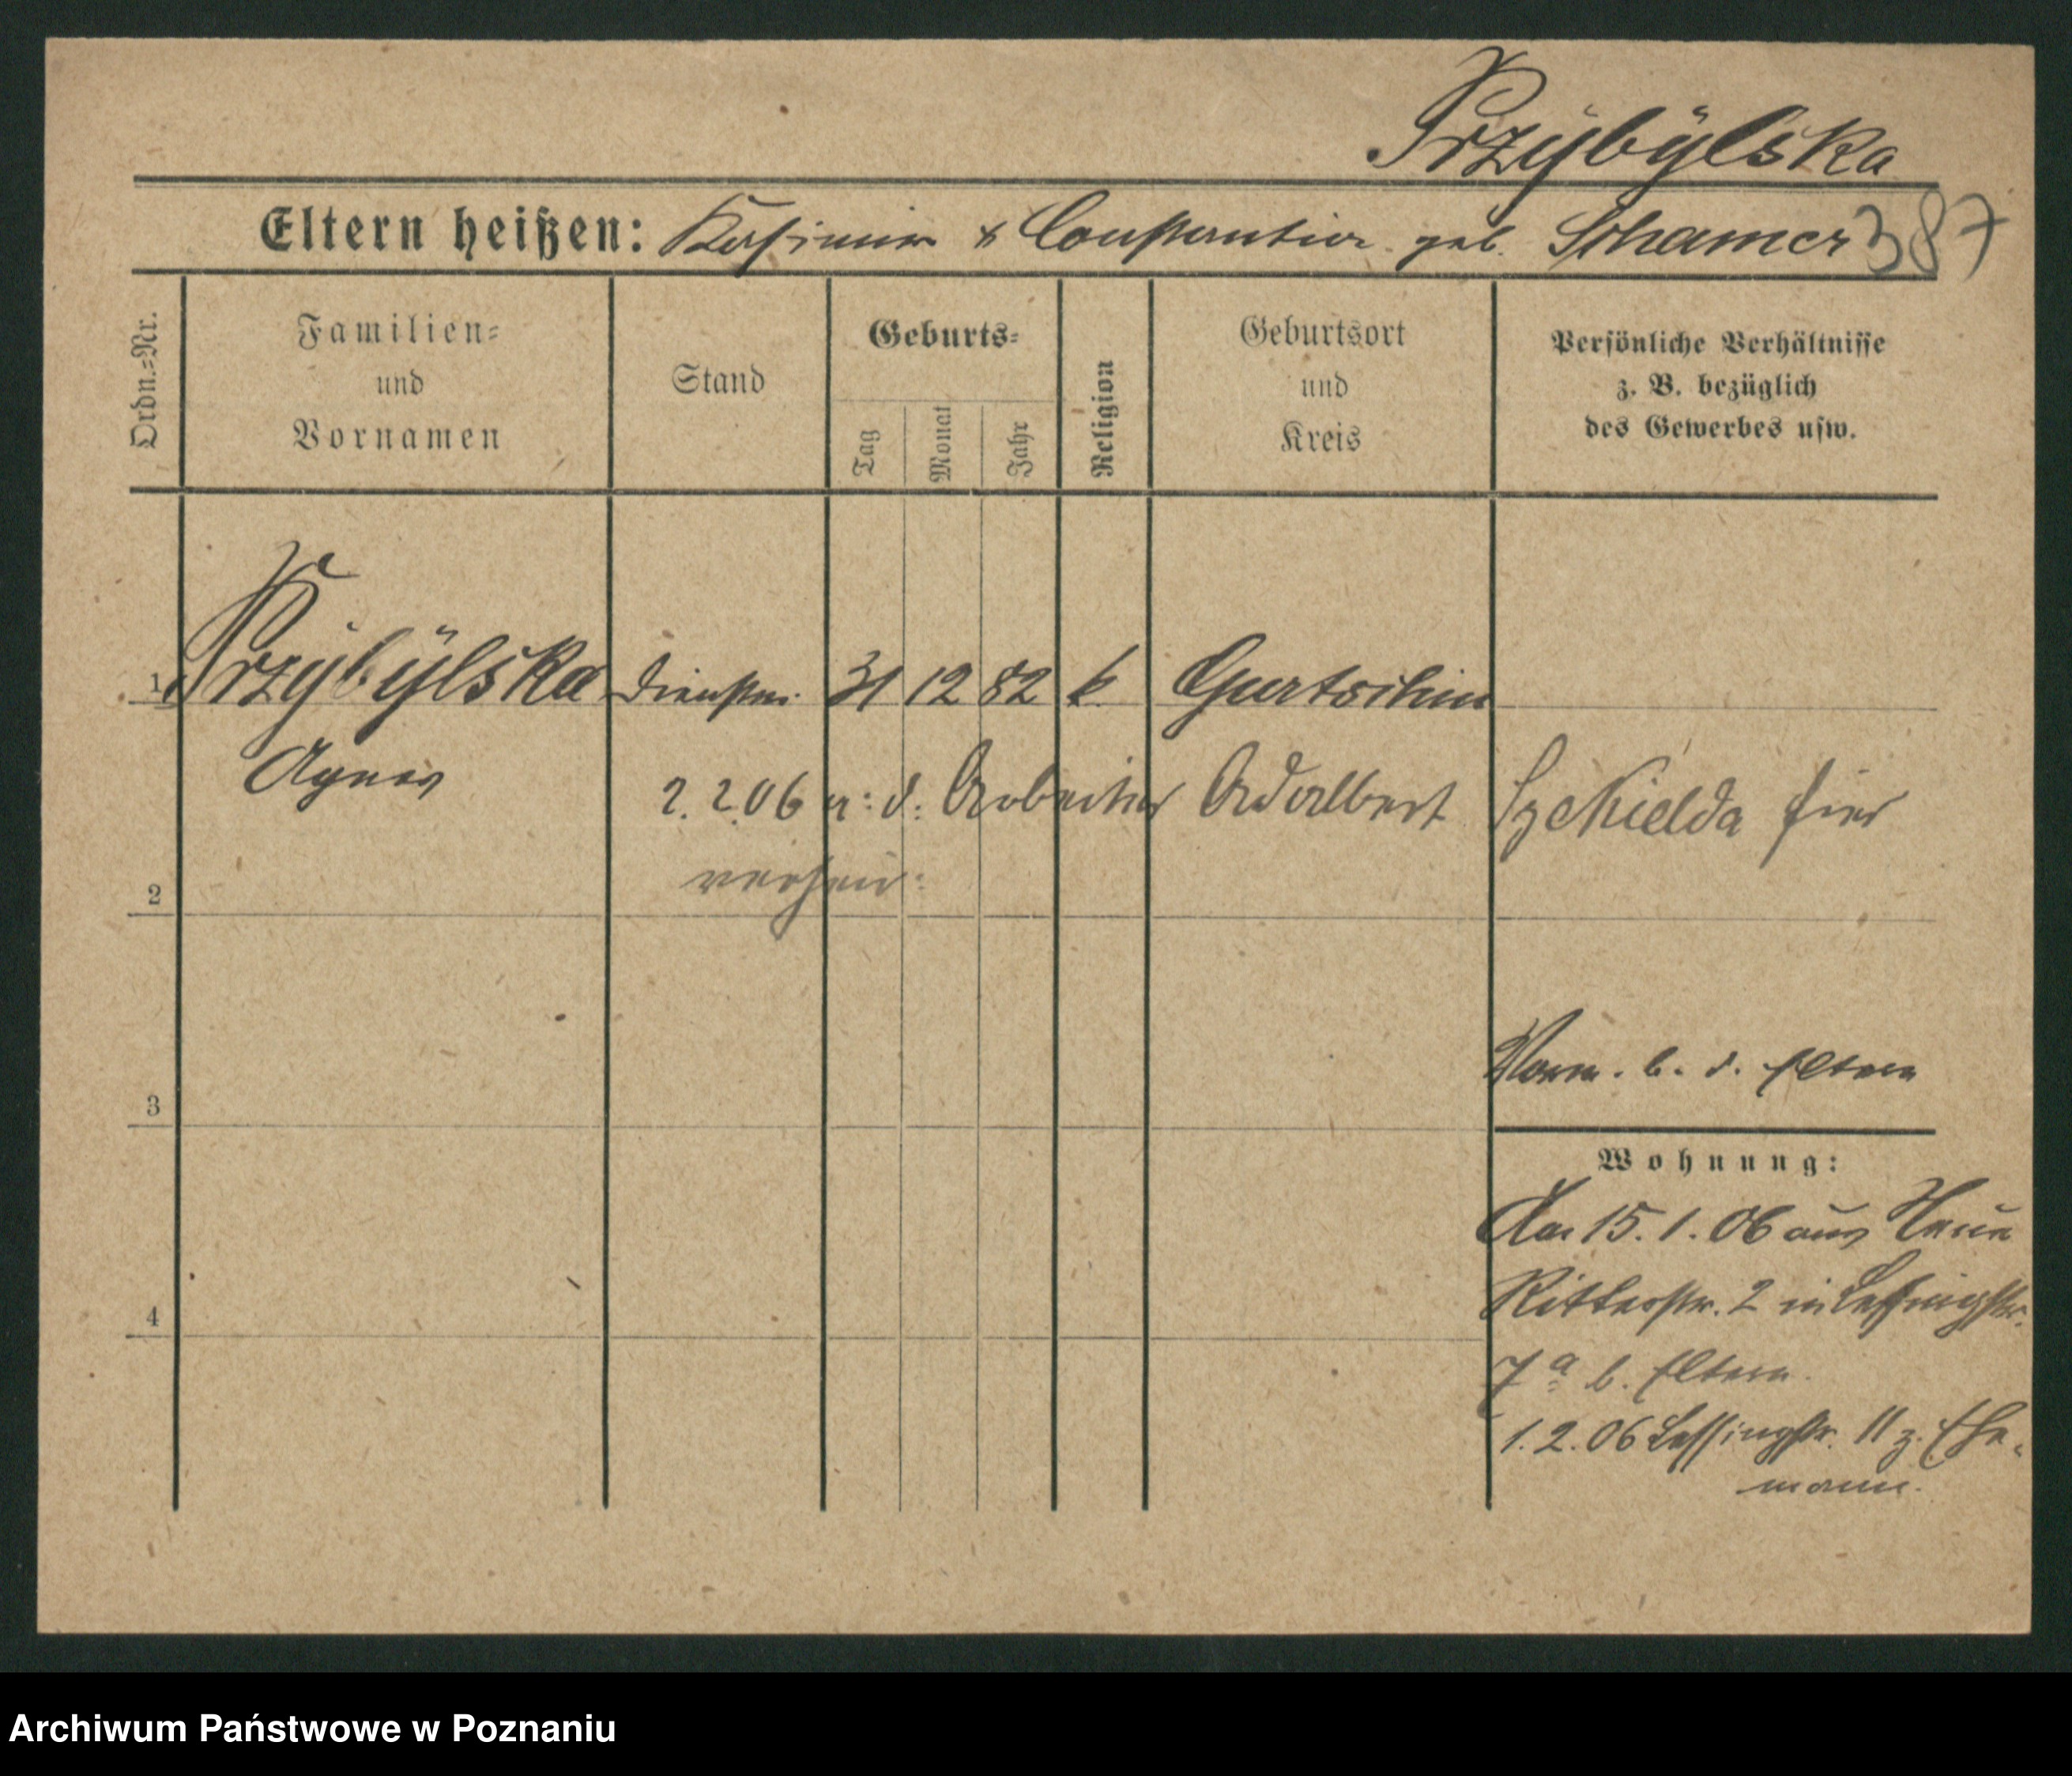 Przÿbÿlska
Eltern heißen: Kasimir & Constantia geb. Schamer 387
Ordn.-Nr.
Familien-
und
Vornamen
Stand
Geburts-
Tag
Monat
Jahr
Religion
Geburtsort
und
Kreis
Persönliche Verhältnisse
z. B. bezüglich
des Gewerbes usw.
1 Przÿbÿlska Dienstm. 31 12 82 k. Gurtschin
Agnes 2. 2. 06 m: d: Arbeiter Adalbert Szekielda hier
verheir:
2
Vorm. b. d. Eltern
3
Wohnung:
Am 15. 1. 06 aus Neue
Ritterstr. 2 in Lessingstr.
4
7a b. Eltern.
1. 2. 06 Lessingstr. 11 z. Ehe-
mann.
Archiwum Państwowe w Poznaniu